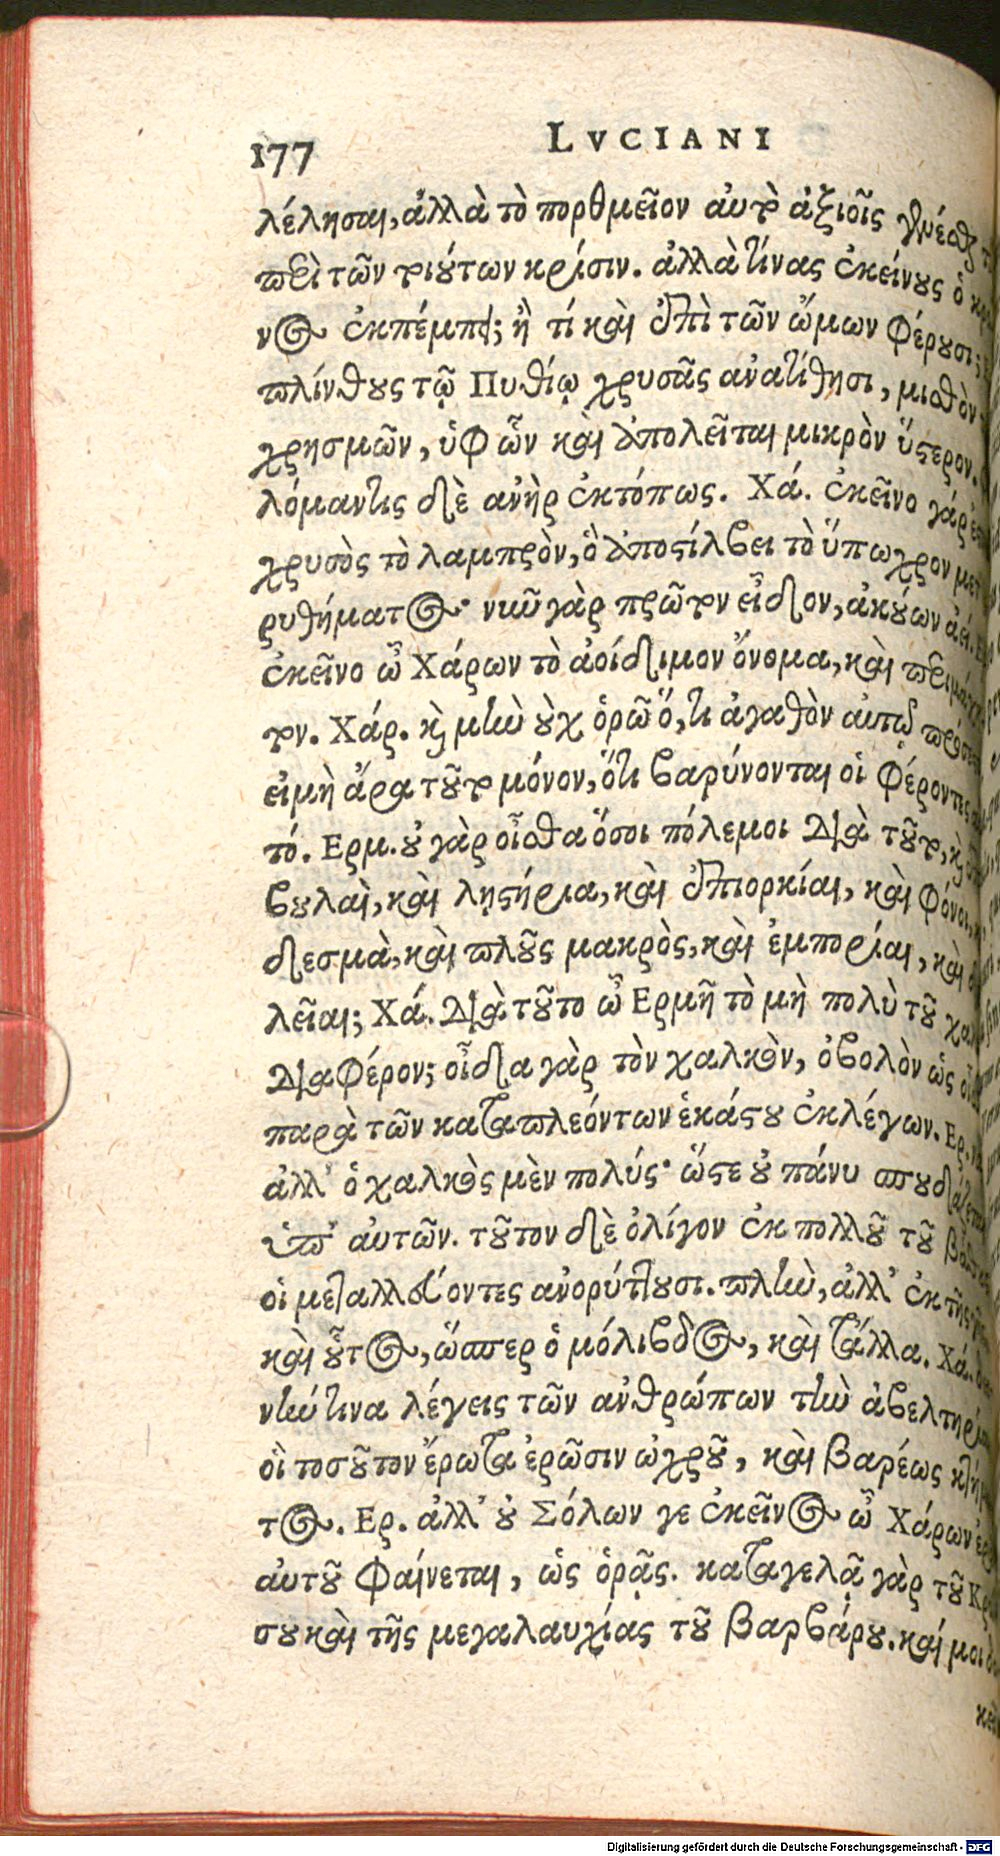 177 LVCIANI
λέλησαι, ἀλλὰ τὸ πορθμεῖον αὐτὸ ἀξιοῖς γενέσθαι
περὶ τῶν τοιούτων κρίσιν. ἀλλὰ τίνας ἐκείνους ὁ
νος ἐκπέμπει; ἢ τί καὶ ἐπὶ τῶν ὤμων φέρουσι;
πλίνθους τῷ Πυθίῳ χρυσᾶς ἀνατίθησι, μισθὸν
χρησμῶν, ὑφ ὧν καὶ ἀπολεῖται μικρὸν ὕστερον.
λόμαντις δὲ ἀνὴρ ἐκτόπως. Χά. ἐκεῖνο γάρ
χρυσὸς τὸ λαμπρὸν, ὃ ἀποστίλβει τὸ ὕπωχρον
ρυθήματος· νιῦ γὰρ πρῶτον εἶδον, ἀκούων ἀεί.
ἐκεῖνο ὦ Χάρων τὸ ἀοίδιμον ὄνομα, καὶ
τον. Χάρ. καὶ μὴν οὐχ ὁρῶ ὅ, τι ἀγαθὸν αὐτῷ
εἰμὴ ἄρα τοῦτο μόνον, ὅτι βαρύνονται οἱ φέροντες
τό. Ερμ. οὐ γὰρ οἶσθα ὅσοι πόλεμοι διὰ τοῦτο, καὶ
βουλαὶ, καὶ λῃστήρια, καὶ ἐπιορκίαι, καὶ φόνοι,
δεσμὰ, καὶ πλοῦς μακρὸς, καὶ ἐμπορίαι, καὶ
λεῖαι; Χά. Διὰ τοῦτο ὦ Ερμῆ τὸ μὴ πολὺ τοῦ
Διαφέρον; οἶδα γὰρ τὸν χαλκὸν, ὀβολὸν ὡς
παρὰ τῶν καταπλεόντων ἑκάστου ἐκλέγων. Ερ.
ἀλλ' ὁ χαλκὸς μὲν πολύς· ὥστε οὐ πάνυ
ὑπ' αὐτῶν. τοῦτον δὲ ὀλίγον ἐκ πολλοῦ τοῦ
οἱ μεταλλεύοντες ἀνορύττουσι. πλὴν, ἀλλ' ἐκ τῆς
καὶ οὗτος, ὥσπερ ὁ μόλιβδος, καὶ τἄλλα. Χά.
νήν τινα λέγεις τῶν ἀνθρώπων τὴν
οἳ τοσοῦτον ἔρωτα ἐρῶσιν ὠχροῦ, καὶ βαρέως
τος. Ερ. ἀλλ' οὐ Σόλων γε ἐκεῖνος ὦ Χάρων
αὐτοῦ φαίνεται, ὡς ὁρᾷς. καταγελᾷ γὰρ τοῦ
σου καὶ τῆς μεγαλαυχίας τοῦ βαρβάρου. καί μοι